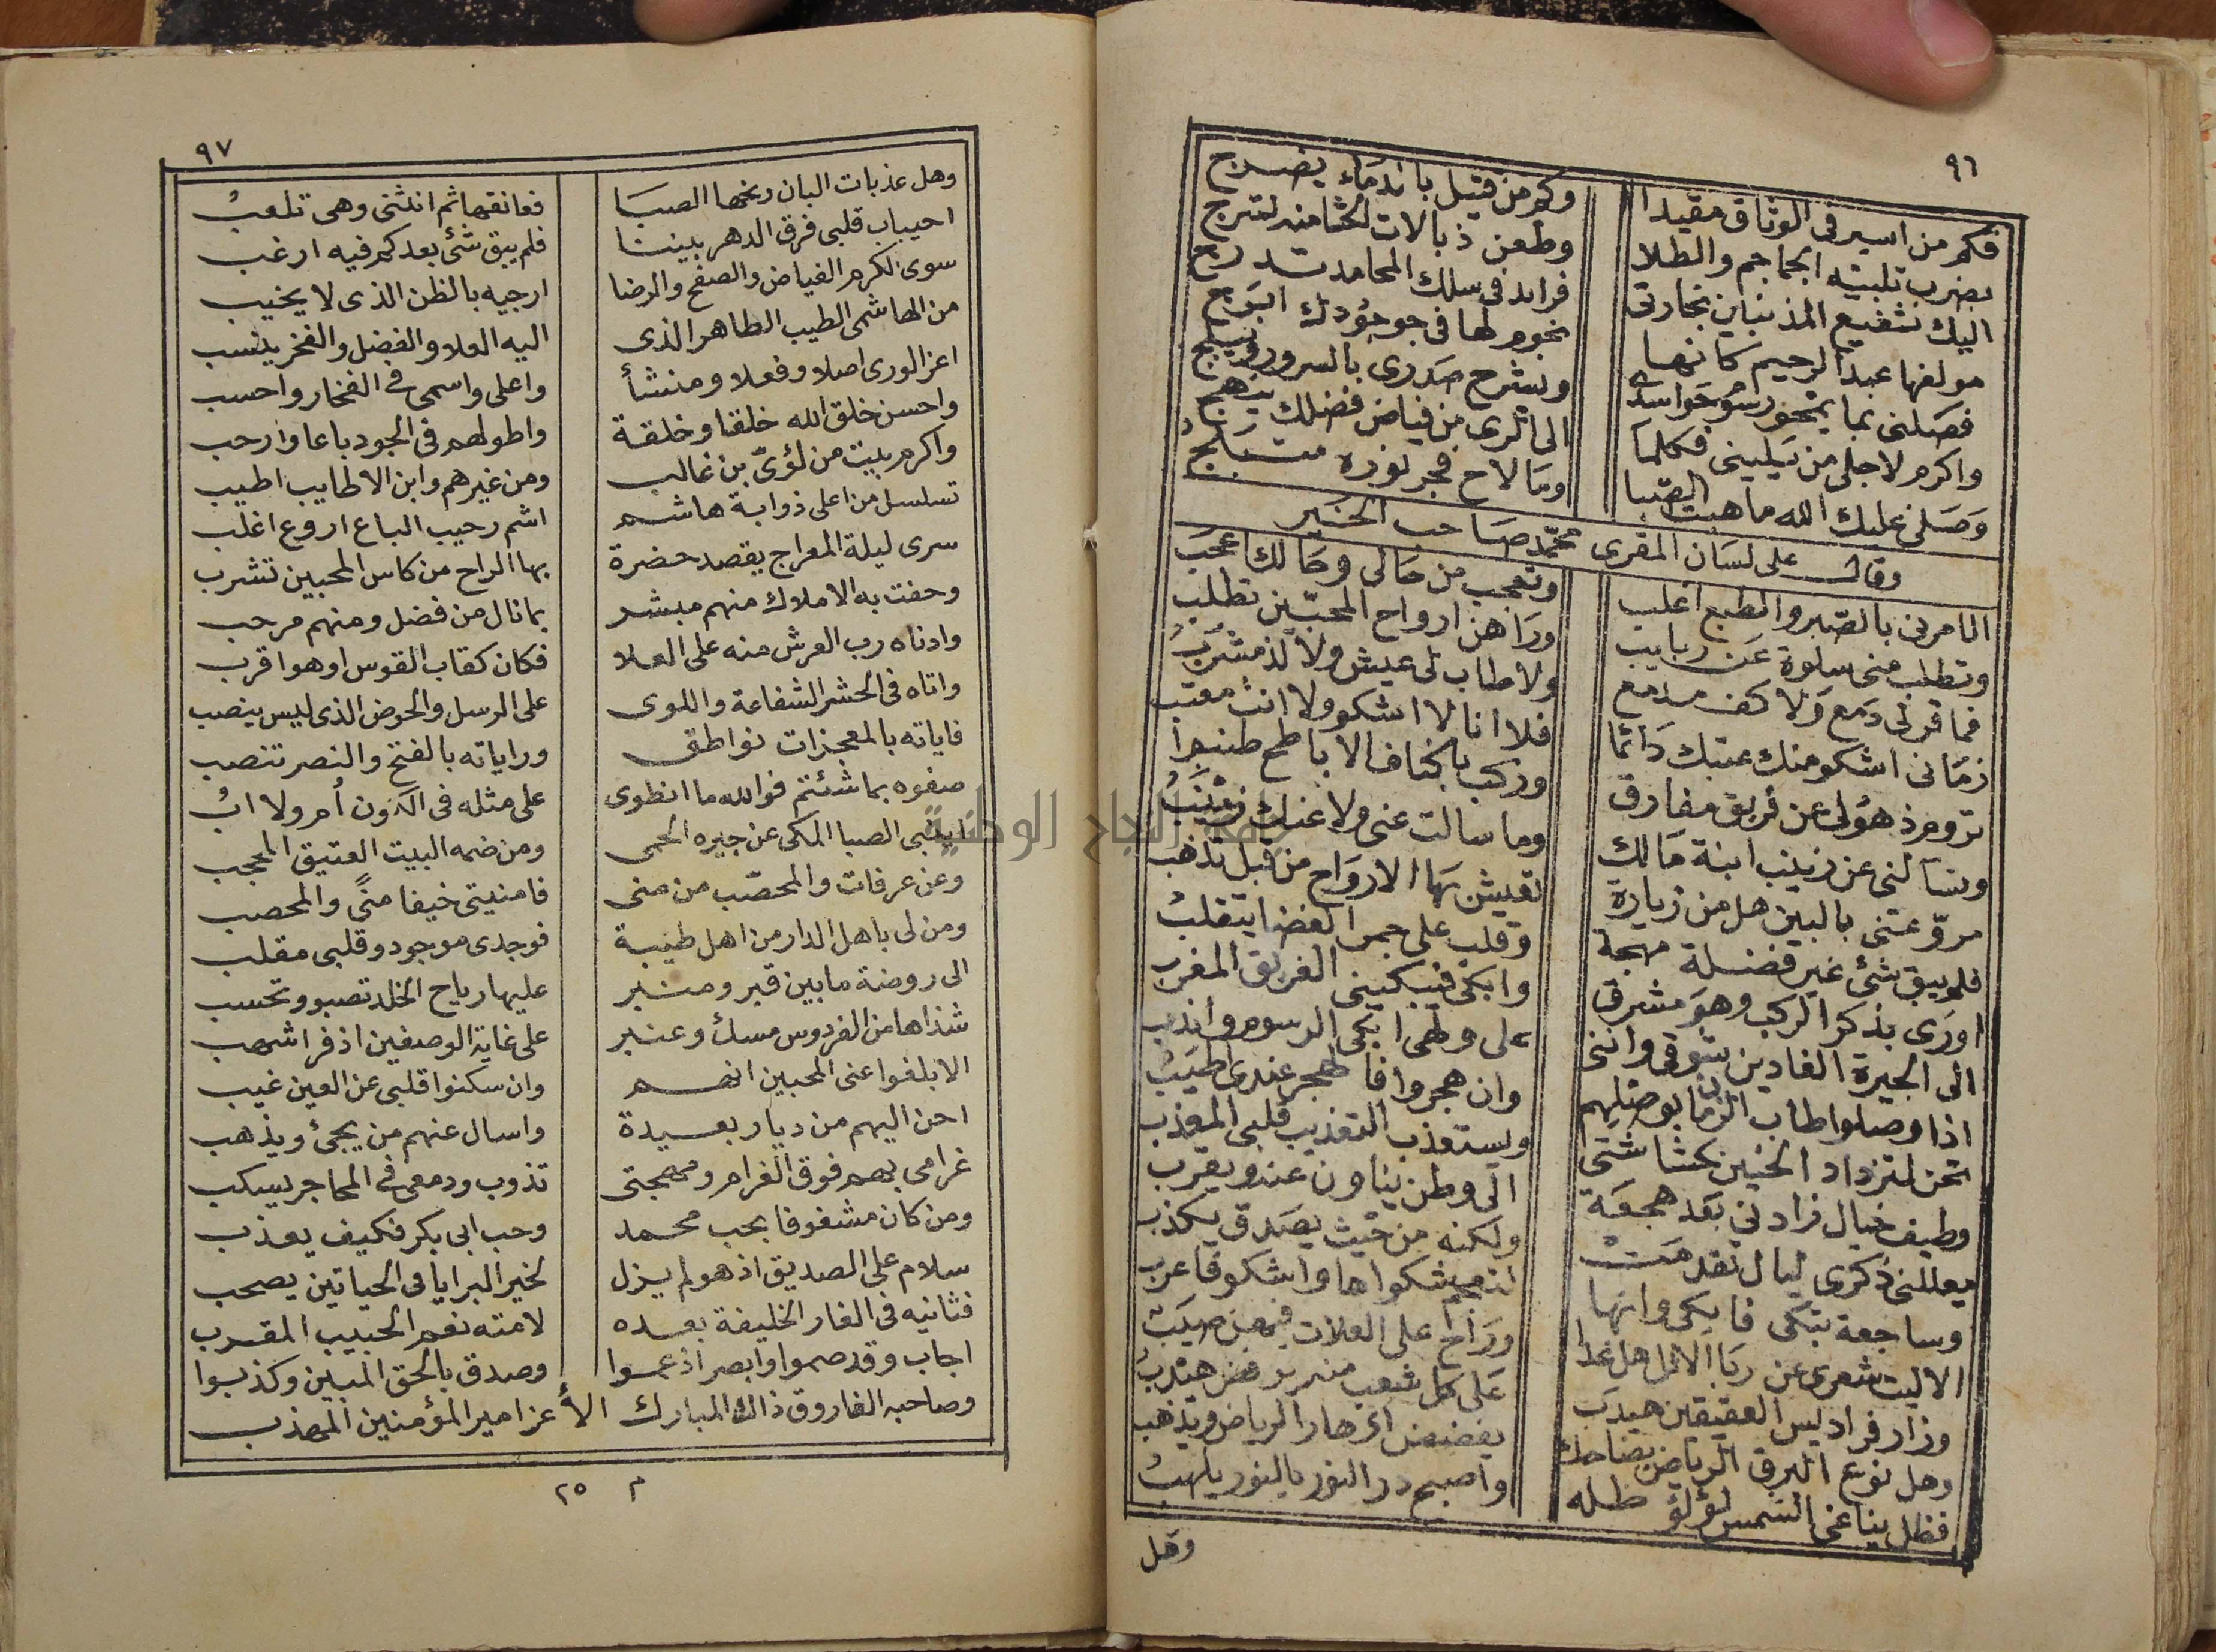 ٩٦
فكم من اسير في الوثاق مقيدا وكم من قتيل بالدماء يضرج
بضرب تلبيته الجماجم والطلا وطعن ذبالات الحشا منه تسرج
اليك شفيع المذنبين تجارتي فرايد في سلك المحامد تدرج
مولفها عبد الرحيم كانها نجوم لها في جو جودك ابرج
فصلني بما يمحو رسوم حواسدي ويشرح صدري بالسرور ويثلج
واكرم لاجلي من يليني فكلنا الى الري من فياض فضلك ينهج
وصلى عليك الله ما هبت الصبا وما لاح فجر نوره متبلج
وقال على لسان المقرى محمد صاحب الخير
اتامرني بالصبر والطبع اغلب وتعجب من حالي وحالك اعجب
وتطلب مني سلوة عن ربايب وراهن ارواح المحبين تطلب
فما قر لي دمع ولا كف مدمع ولا طاب لي عيش ولا لذ مشرب
زماني اشكو منك عتبك دائما فلا انا لا اشكو ولا انت معتب
تروم ذهولي عن فريق مفارق وركب باكناف الاباطح طنبوا
وتسالني عن زينب ابنة مالك وما سالت عني ولا عنك زينب
مروعتي بالبين هل من زيارة تعيش بها الارواح من قبل تذهب
فلم يبق شئ غير فضلة مهجة وقلب على جمر الغضا يتقلب
اورى بذكر الركب وهو مشرق وابكي فيبكيني الفريق المغرب
الى الجيرة الغادين شوقي وانني على وطني ابكي الرسوم واندب
اذا وصلوا طاب الزمان بوصلهم وان هجروا فالهجر عندي اطيب
تحن لتزداد الحنين حشاشتي ويستعذب التعذيب قلبي المعذب
وطيف خيال زارني بعد هجعة الى وطن ينأون عنه ويقرب
يعللني ذكرى ليال تقدمت ولكنه من حيث يصدق يكذب
وساجعة تبكي فابكي وانها لتعجم شكواها واشكو فاعرب
الا ليت شعري عن ربا الاثل هل غدا وراح على العلات فيهن صيب
وزار فراديس العقيقين هيدب على كل شعب منه روض هيدب
وهل نوع البرق الرياض بضاحك يفضض ازهار الرياض ويذهب
فظل يناغي الشمس لؤلؤ طله واصبح در النور بالنور يلهب
وهل
٩٧
وهل عذبات البان رنحها الصبا فعانقها ثم انثنى وهي تلعب
احيباب قلبي فرق الدهر بيننا فلم يبق شئ بعدكم فيه ارغب
سوى الكرم الفياض والصفح والرضا ارجيه بالظن الذي لا يخيب
من الهاشمي الطيب الطاهر الذي اليه العلا والفضل والفخر ينسب
اعز الورى اصلا وفعلا ومنشأ واعلى واسمى في الفخار واحسب
واحسن خلق الله خلقا وخلقة واطولهم في الجود باعا وارحب
واكرم بيت من لؤى بن غالب ومن غيرهم وابن الاطايب اطيب
تسلسل من اعلى ذوابة هاشم اشم رحيب الباع اروع اغلب
سرى ليلة المعراج يقصد حضرة بها الراح من كاس المحبين تشرب
وحفت به الاملاك منهم مبشر بما نال من فضل ومنهم مرحب
وادناه رب العرش منه على العلا فكان كقاب القوس او هو اقرب
واتاه في الحشر الشفاعة واللوى على الرسل والحوض الذي ليس ينضب
فاياته بالمعجزات نواطق وراياته بالفتح والنصر تنصب
صفوه بما شئتم فوالله ما انطوى على مثله في الكون أم ولا اب
ايكبى الصبا المكى عن جيره الحمى ومن ضمه البيت العتيق المحجب
وعن عرفات والمحصّب من منى فامنيتي خيفا منًى والمحصب
ومن لي باهل الدار من اهل طيبة فوجدي موجود وقلبي مقلب
الى روضة ما بين قبر ومنبر عليها رياح الخلد تصبو وتحسب
شذاها من الفردوس مسك وعنبر على غاية الوصفين اذفر اشهب
الا بلغوا عني المحبين انهم وان سكنوا قلبي عن العين غيب
احن اليهم من ديار بعيدة واسال عنهم من يجئ ويذهب
غرامي بهم فوق الغرام ومهجتي تذوب ودمعي في المحاجر يسكب
ومن كان مشغوفا بحب محمد وحب ابى بكر فكيف يعذب
سلام على الصديق اذ هو لم يزل لخير البرايا في الحياتين يصحب
فثانيه في الغار الخليفة بعده لامته نعم الحبيب المقرب
اجاب وقد صموا وابصر اذ عموا وصدق بالحق المبين وكذبوا
وصاحبه الفاروق ذاك المبارك الأعز امير المؤمنين المهذب
م ٢٥
جامعة النجاح الوطنية